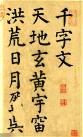 千字文
天地玄黃宇宙
洪荒日月盈昃